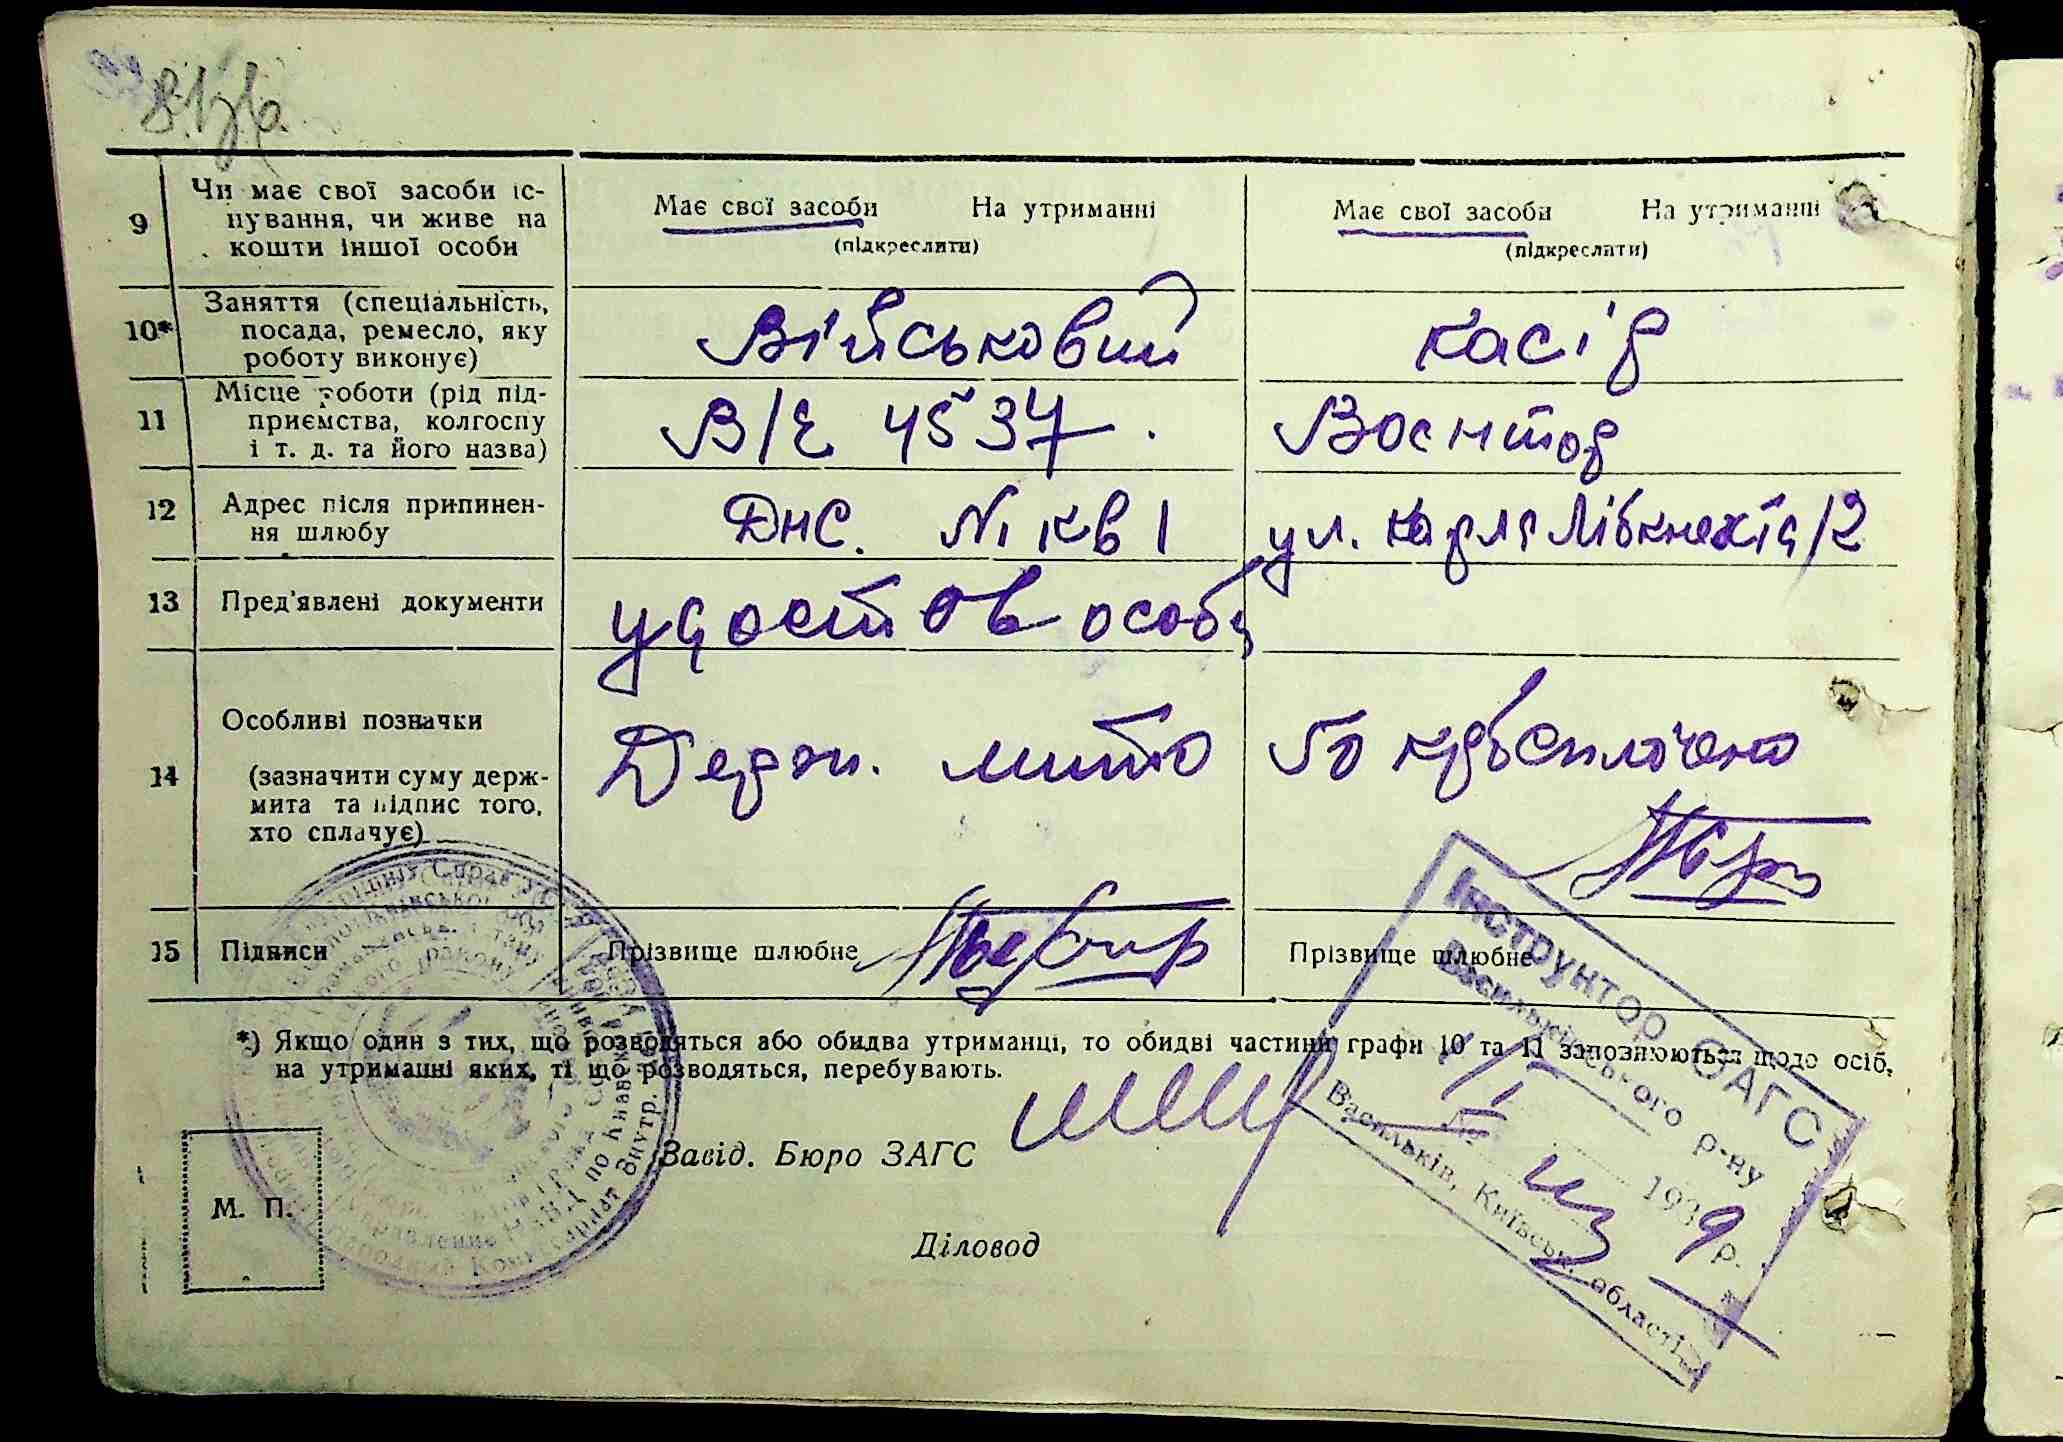 9
Чи має свої засоби іс-
нування, чи живе на
кошти іншої особи
Має свої засоби На утриманні
(підкреслити)
Має свої засоби На утриманні
(підкреслити)
10*
Заняття (спеціальність,
посада, ремесло, яку
роботу виконує)
Військовий
касір
11
Місце роботи (рід під-
приємства, колгоспу
і т. д. та його назва)
В/г 4537.
Воєнторг
12
Адрес після припинен-
ня шлюбу
ДНС. №1 кв 1
ул. Карла Лібкнехта 12
13
Пред'явлені документи
удостов особи
14
Особливі позначки
(зазначити суму держ-
мита та підпис того,
хто сплачує)
Держ. мито 50 крб сплачено
15
Підписи
Прізвище шлюбне
Прізвище шлюбне
*) Якщо один з тих, що розводяться або обидва утриманці, то обидві частини графи 10 та 11 заповнюються щодо осіб,
на утриманні яких, ті що розводяться, перебувають.
Завід. Бюро ЗАГС
М. П.
Діловод
Інструктор ЗАГС
Васильківського р-ну
1939 р.
Васильків, Київськ. області